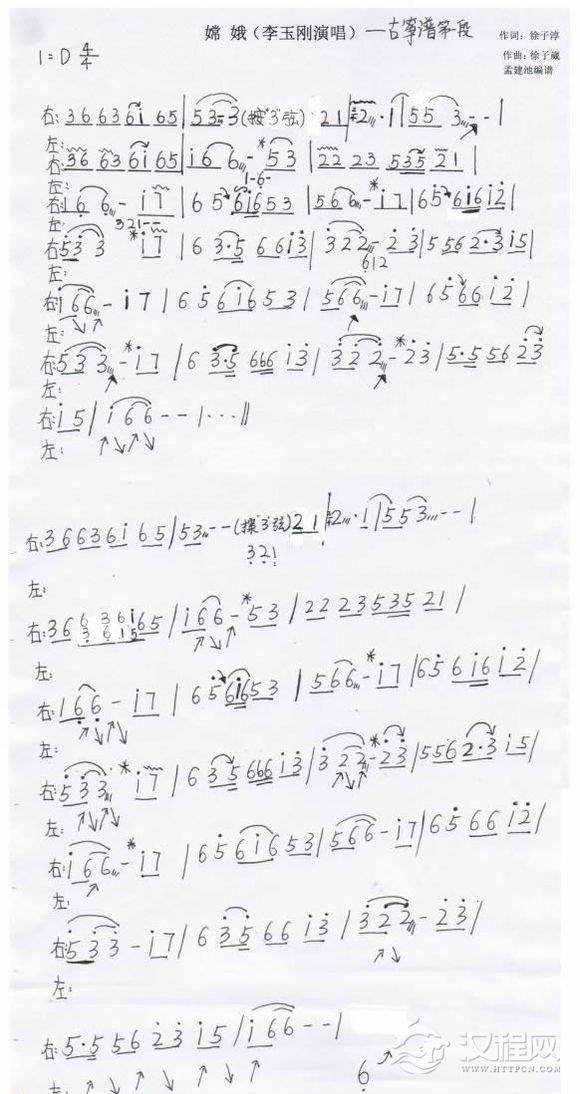 嫦 娥（李玉刚演唱）—古筝谱筝段
作词：徐子淳
作曲：徐子崴
孟建池编谱
1=D 4/4
右: 36 63 6i 65 | 53--3 (按"3"弦) 21 | 2···1 | 55 3-- |
左:
右: 36 63 6i 65 | i 6 6 - *53 | 22 23 535 21 |
左: 1-6-
右: 1 6 6 - i7 | 6 5 6i6 53 | 5 6 6 - *i7 | 6 5 6i6 i2 |
左: 321--
右: 5 3 3 *i7 | 6 3·5 6 6 i3 | 3 2 2 - 23 | 5 5 6 2·3 i5 |
612
左:
右: i 6 6 - i 7 | 6 5 6 i 6 5 3 | 5 6 6 - i7 | 6 5 6 6 i 2 |
左: ↓ ↗
右: 5 3 3 - *i7 | 6 3·5 666 i3 | 3 2 2 - *23 | 5·5 56 23 |
左:
右: i 5 | i 6 6 - - | ··· ‖
左: ↗↘↗↘
右: 36 63 6i 65 | 53··· -- (按"3"弦) 21 | 2···1 | 5 5 3··· - - |
321
左:
右: 36 63 6i 65 | i 6 6 - *53 | 22 23 535 21 |
36 15
左:
右: 1 6 6 - i7 | 6 5 6i6 53 | 5 6 6 - *i7 | 6 5 6i6 i2 |
左:
右: 5 3 3 *i7 | 6 3 5 666 i3 | 3 2 2 - *23 | 5 5 6 2·3 i5 |
左:
右: i 6 6 - *i7 | 6 5 6 i 6 5 3 | 5 6 6 - i7 | 6 5 6 6 i 2 |
左:
右: 5 3 3 - i7 | 6 3 5 6 6 i3 | 3 2 2 - 23 |
左:
右: 5·5 56 23 i5 | i 6 6 - - |
左: ↗ ↘ ↗ ↘ ↗ ↘ ↗ 6 ↗
汉程网
WWW.HTTPCN.COM